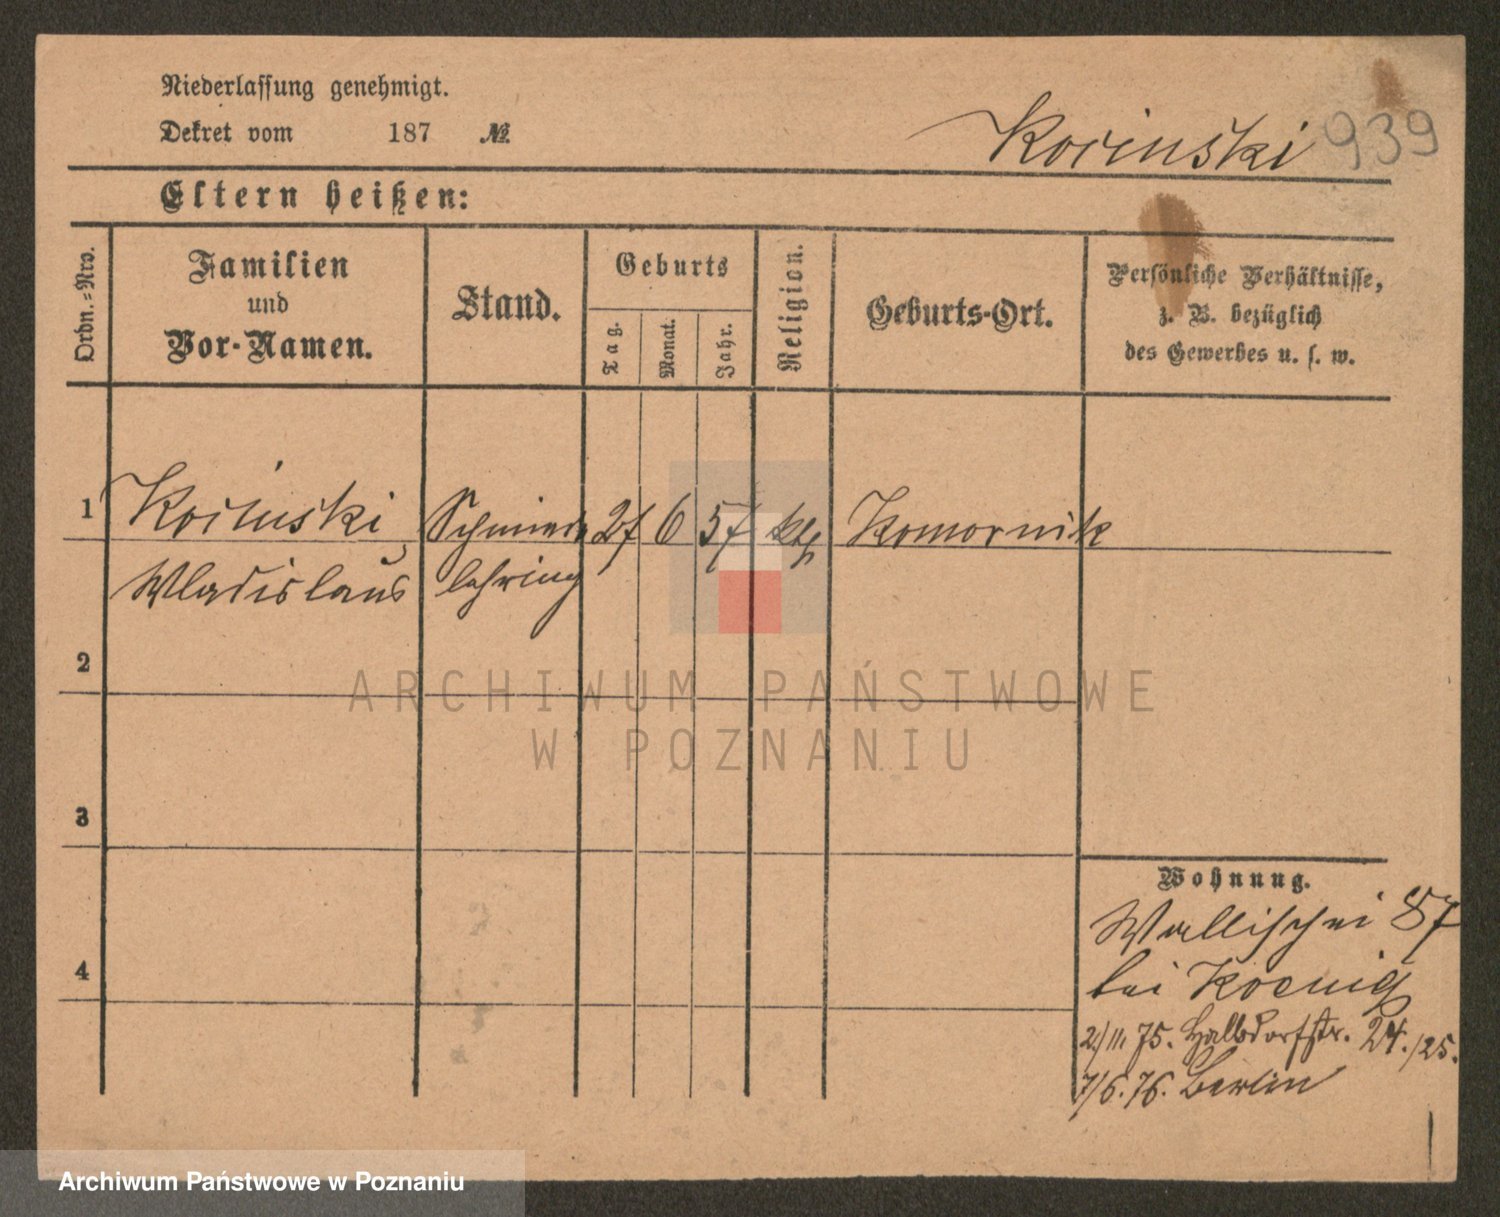 Niederlassung genehmigt.
Dekret vom 187 №.
Korinski 939
Eltern heißen:
Ordn.=Nro.
Familien
und
Vor-Namen.
Stand.
Geburts
Tag.
Monat.
Jahr.
Religion.
Geburts-Ort.
Persönliche Verhältnisse,
z. B. bezüglich
des Gewerbes u. s. w.
1 Korinski Schmiede 27 6 57 kth Komornik
Wladislaus lehrling
2
3
4
Wohnung.
Wallischei 87
bei Koenig
2/11. 75. Halbdorfstr. 24./25.
7/6. 76. Berlin
ARCHIWUM PAŃSTWOWE
W POZNANIU
Archiwum Państwowe w Poznaniu